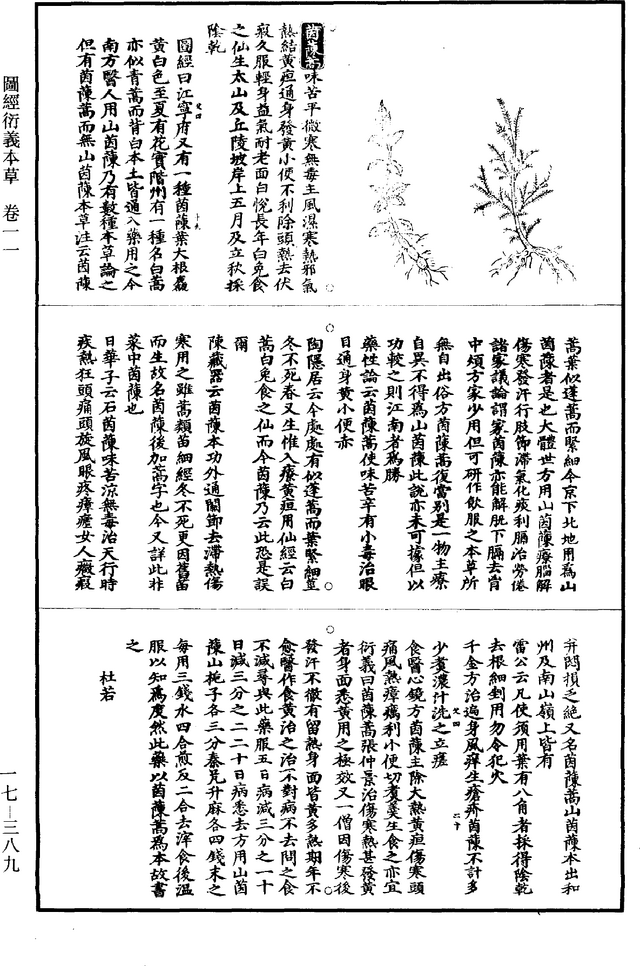 圖經衍義本草　卷一一
茵蔯蒿味苦平微寒無毒主風濕寒熱邪氣
熱結黃疸通身發黃小便不利除頭熱去伏
瘕久服輕身益氣耐老面白悅長年白兔食
之仙生太山及丘陵坡岸上五月及立秋採
陰乾
圖經曰江寧府又有一種茵蔯葉大根麤
黃白色至夏有花實階州有一種名白蒿
亦似青蒿而背白本土皆通入藥用之今
南方醫人用山茵蔯乃有數種本草論之
但有茵蔯蒿而無山茵蔯本草注云茵蔯
蒿葉似蓬蒿而緊細今京下北地用為山
茵蔯者是也大體世方用山茵蔯療腦解
傷寒發汗行肢節滯氣化痰利膈治勞倦
諸家議論謂家茵蔯亦能解肌下膈去胷
中煩方家少用但可研作飲服之本草所
無自出俗方茵蔯蒿復當別是一物主療
自異不得為山茵蔯此說亦未可據但以
功較之則江南者為勝
藥性論云茵蔯蒿使味苦辛有小毒治眼
目通身黃小便赤
陶隱居云今處處有似蓬蒿而葉緊細莖
冬不死春又生惟入療黃疸用仙經云白
蒿白兔食之仙而今茵蔯乃云此恐是誤
爾
陳藏器云茵蔯本功外通關節去滯熱傷
寒用之雖蒿類苗細經冬不死更因舊苗
而生故名茵蔯後加蒿字也今又詳此非
菜中茵蔯也
日華子云石茵蔯味苦涼無毒治天行時
疾熱狂頭痛頭旋風眼疼瘴瘧女人癥瘕
并閃損乏絕又名茵蔯蒿山茵蔯本出和
州及南山嶺上皆有
雷公云凡使須用葉有八角者採得陰乾
去根細剉用勿令犯火
千金方治遍身風痒生瘡疥茵蔯不計多
少煮濃汁洗之立瘥
食醫心鏡方茵蔯主除大熱黃疸傷寒頭
痛風熱瘴癘利小便切煮羹生食之亦宜
衍義曰茵蔯蒿張仲景治傷寒熱甚發黃
者身面悉黃用之極效又一僧因傷寒後
發汗不徹有留熱身面皆黃多熱期年不
愈醫作食黃治之治不對病不去問之食
不減尋與此藥服五日病減三分之一十
日減三分之二二十日病悉去方用山茵
蔯山梔子各三分秦艽升麻各四錢末之
每用三錢水四合煎及二合去滓食後溫
服以知為度然此藥以茵蔯蒿為本故書
之
杜若
一七—三八九